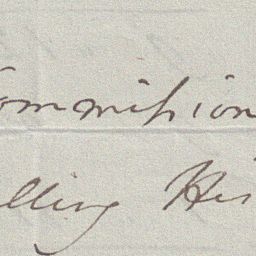 ommission
lling His